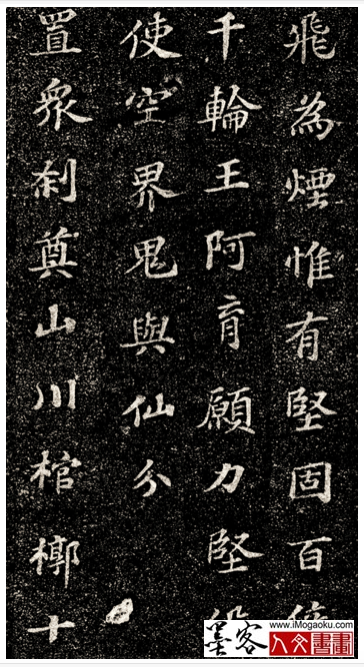 飛為煙惟有堅固百
千輪王阿育願力堅
使空界鬼與仙分
置衆刹奠山川棺槨十
墨客
www.iMogaoku.com
人文書畫